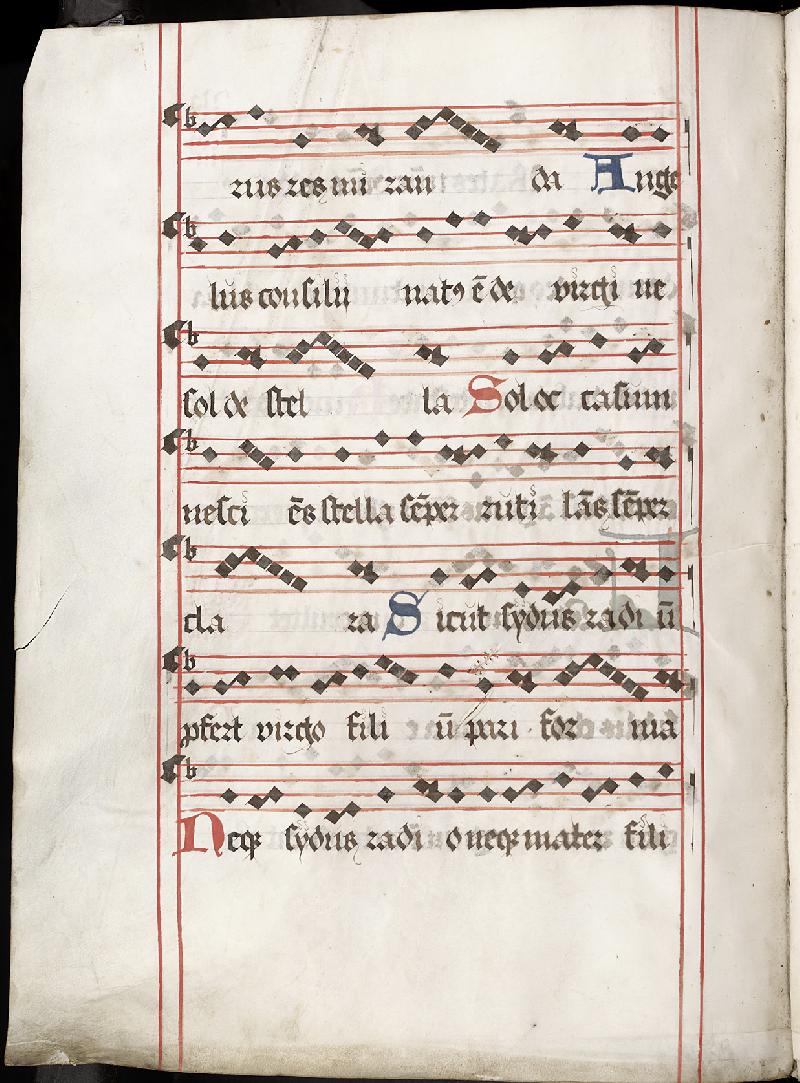 rus res mi ran da Ange
lus consilii natꝰ ē de virgi ne
sol de stel la Sol oc casum
nesci ēs stella sēper ruti lās sēper
cla ra Sicut sydus radi ū
pfert virgo fili ū pari for ma
Neqꝫ sydus radi o neqꝫ mater fili